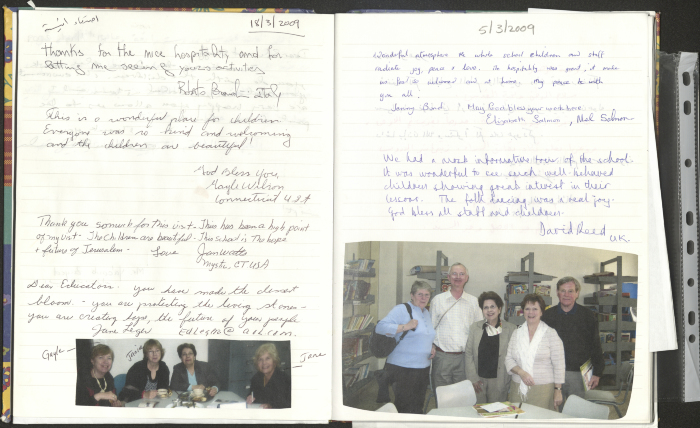 18/3/2009
Thanks for the nice hospitality and for
letting me seeing yours activities
Roberto Italy
This is a wonderful place for children.
Everyone was so kind and welcoming
and the children are beautiful!
God Bless You,
Gayle Wilson
Connecticut USA
Thank you so much for this visit - This has been a high point
of my visit - The Children are beautiful - This school is the hope
+ future of Jerusalem - Love
Mystic, CT USA
Dear Educators - you have made the desert
bloom - you are protecting the living stones -
you are creating hope, the future of your people
Jane
Gayle
Janice
Jane
5/3/2009
Wonderful atmosphere the whole school children and staff
radiate joy, peace & love. The hospitality was good, it made
us feel so welcomed and at home. My peace be with
you all.
May God bless your work here.
Elizabeth Salmon, Mel Salmon
We had a most informative tour of the school.
It was wonderful to see such well-behaved
children showing great interest in their
lessons. The folk dancing was a real joy.
God bless all staff and children.
David Reed
U.K.